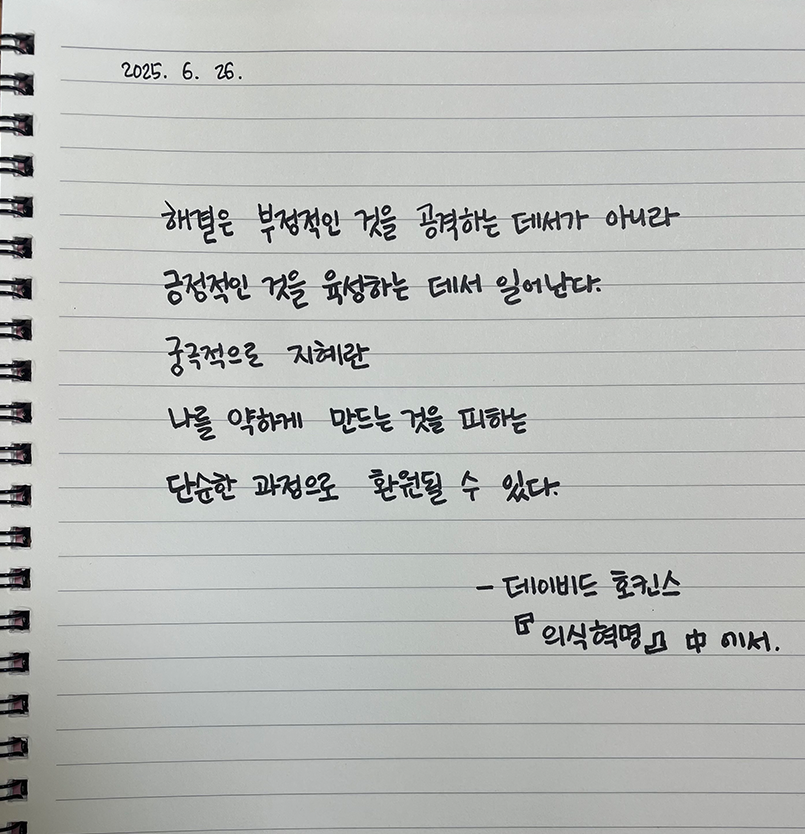 2025. 6. 26.
해결은 부정적인 것을 공격하는 데서가 아니라
긍정적인 것을 육성하는 데서 일어난다.
궁극적으로 지혜란
나를 약하게 만드는 것을 피하는
단순한 과정으로 환원될 수 있다.
- 데이비드 호킨스
『의식혁명』 中 에서.